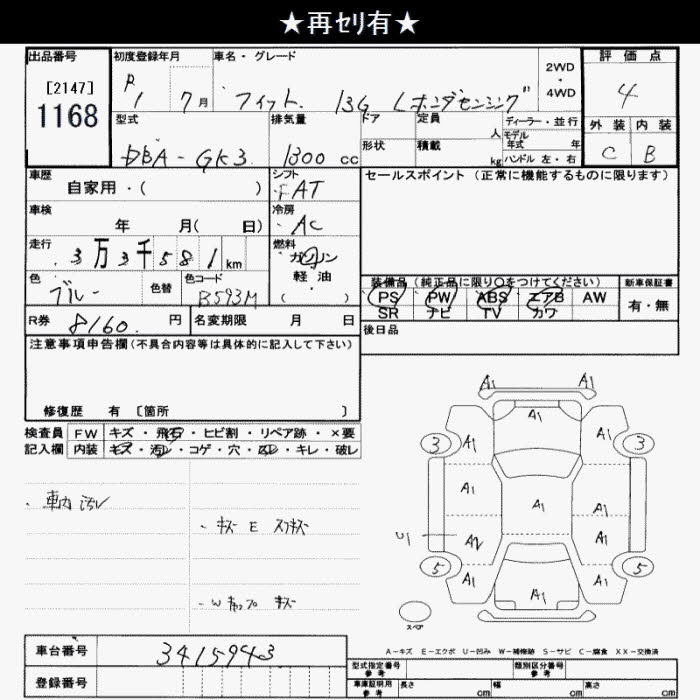 ★再ｾﾘ有★
出品番号 初度登録年月 車名・グレード 2WD・4WD 評価点
[2147] 1168
R1 7月 フィット 13G Lホンダセンシング" 4
型式 排気量 ドア 定員 人 ディーラー・並行 外装 内装
DBA-GK3 1300cc 形状 積載 kg モデル年式 年 ハンドル 左・右 C B
車歴 シフト セールスポイント(正常に機能するものに限ります)
自家用・( ) FAT
車検 冷房
年 月( 日) AC
走行 燃料
3万3千581km ガソリン
軽・油
( )
色 色替 色コード 装備品(純正品に限り○をつけてください) 新車保証書
ブルー B593M PS PW ABS エアB AW 有・無
SR ナビ TV カワ
R券 8160円 名変期限 月 日 後日品
注意事項申告欄(不具合内容等は具体的に記入して下さい)
修復歴 有 〔箇所 〕
検査員 FW キズ・飛石・ヒビ割・リペア跡・×要
記入欄 内装 キズ・汚レ・コゲ・穴・スレ・キレ・破レ
・車内汚レ
・キズ E スリキズ
A1 A1
A1
A1 A1
3 3
A1 A1 A1
U1 A1
5 5
A1 A1 A1
スペア
A-キズ E-エクボ U-凹み W-補修跡 S-サビ C-腐食 XX-交換済
車台番号 3415943
型式指定番号 参考 類別区分番号 参考
登録番号 車庫証明用 参考 長さ cm 幅 cm 高さ cm